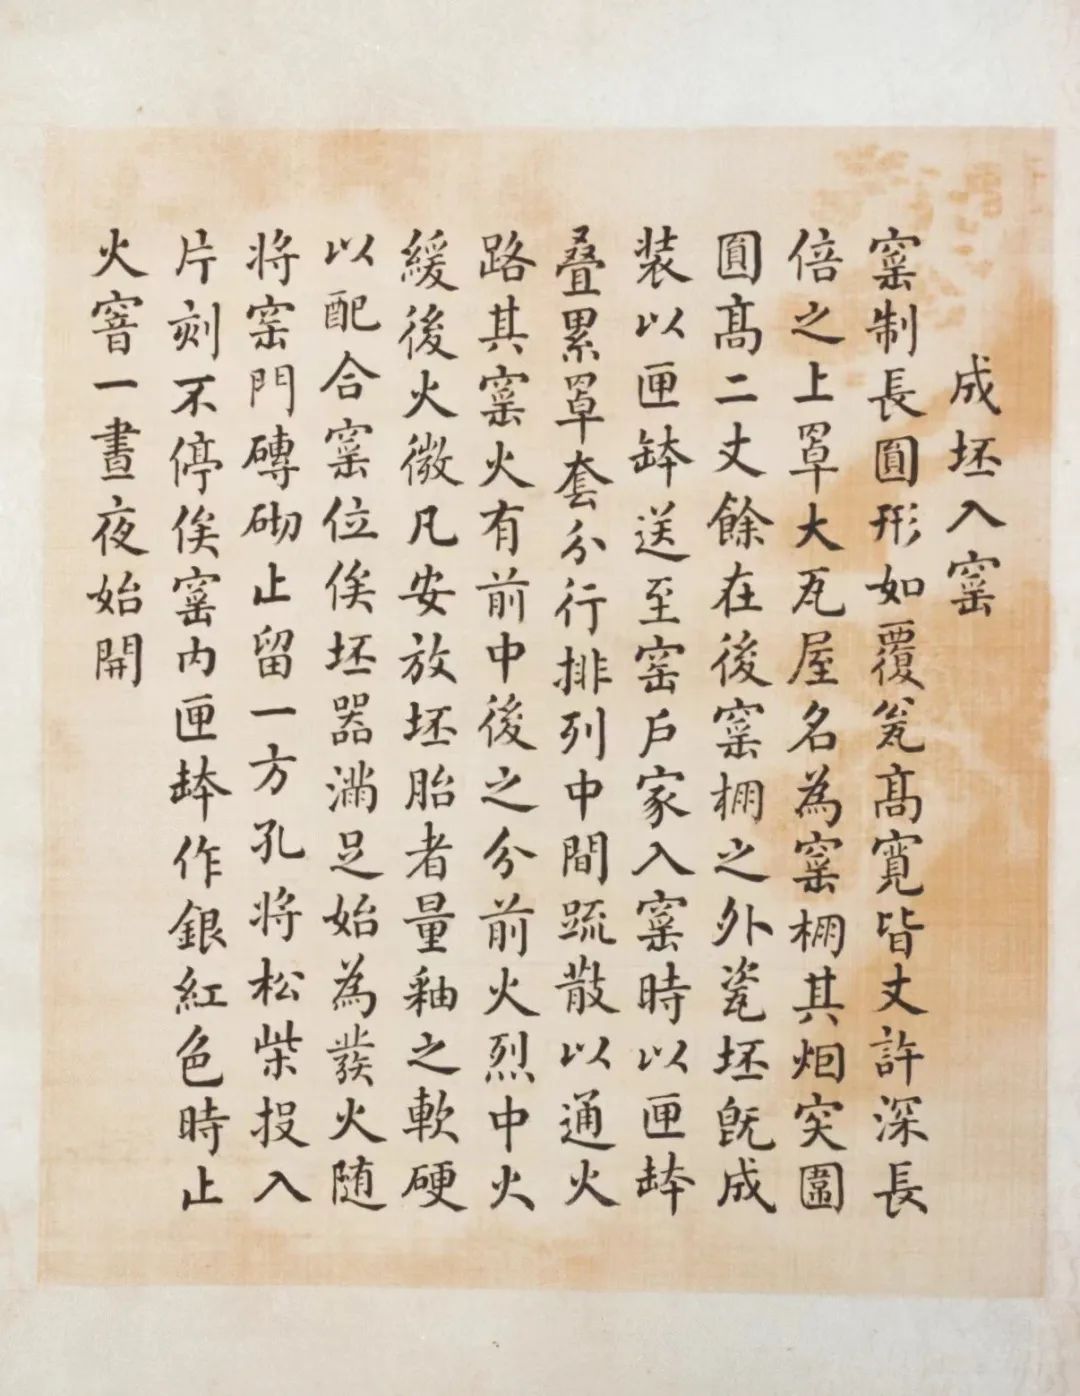 成坯入窰
窰制長圓形如覆瓮髙寛皆丈許深長
倍之上罩大瓦屋名為窰棚其烟突圍
圓髙二丈餘在後窰棚之外瓷坯旣成
装以匣鉢送至窑戶家入窰時以匣鉢
叠累罩套分行排列中間疏散以通火
路其窰火有前中後之分前火烈中火
緩後火微凡安放坯胎者量釉之軟硬
以配合窰位俟坯器滿足始為發火随
将窑門磚砌止留一方孔将松柴投入
片刻不停俟窰内匣鉢作銀紅色時止
火窨一晝夜始開